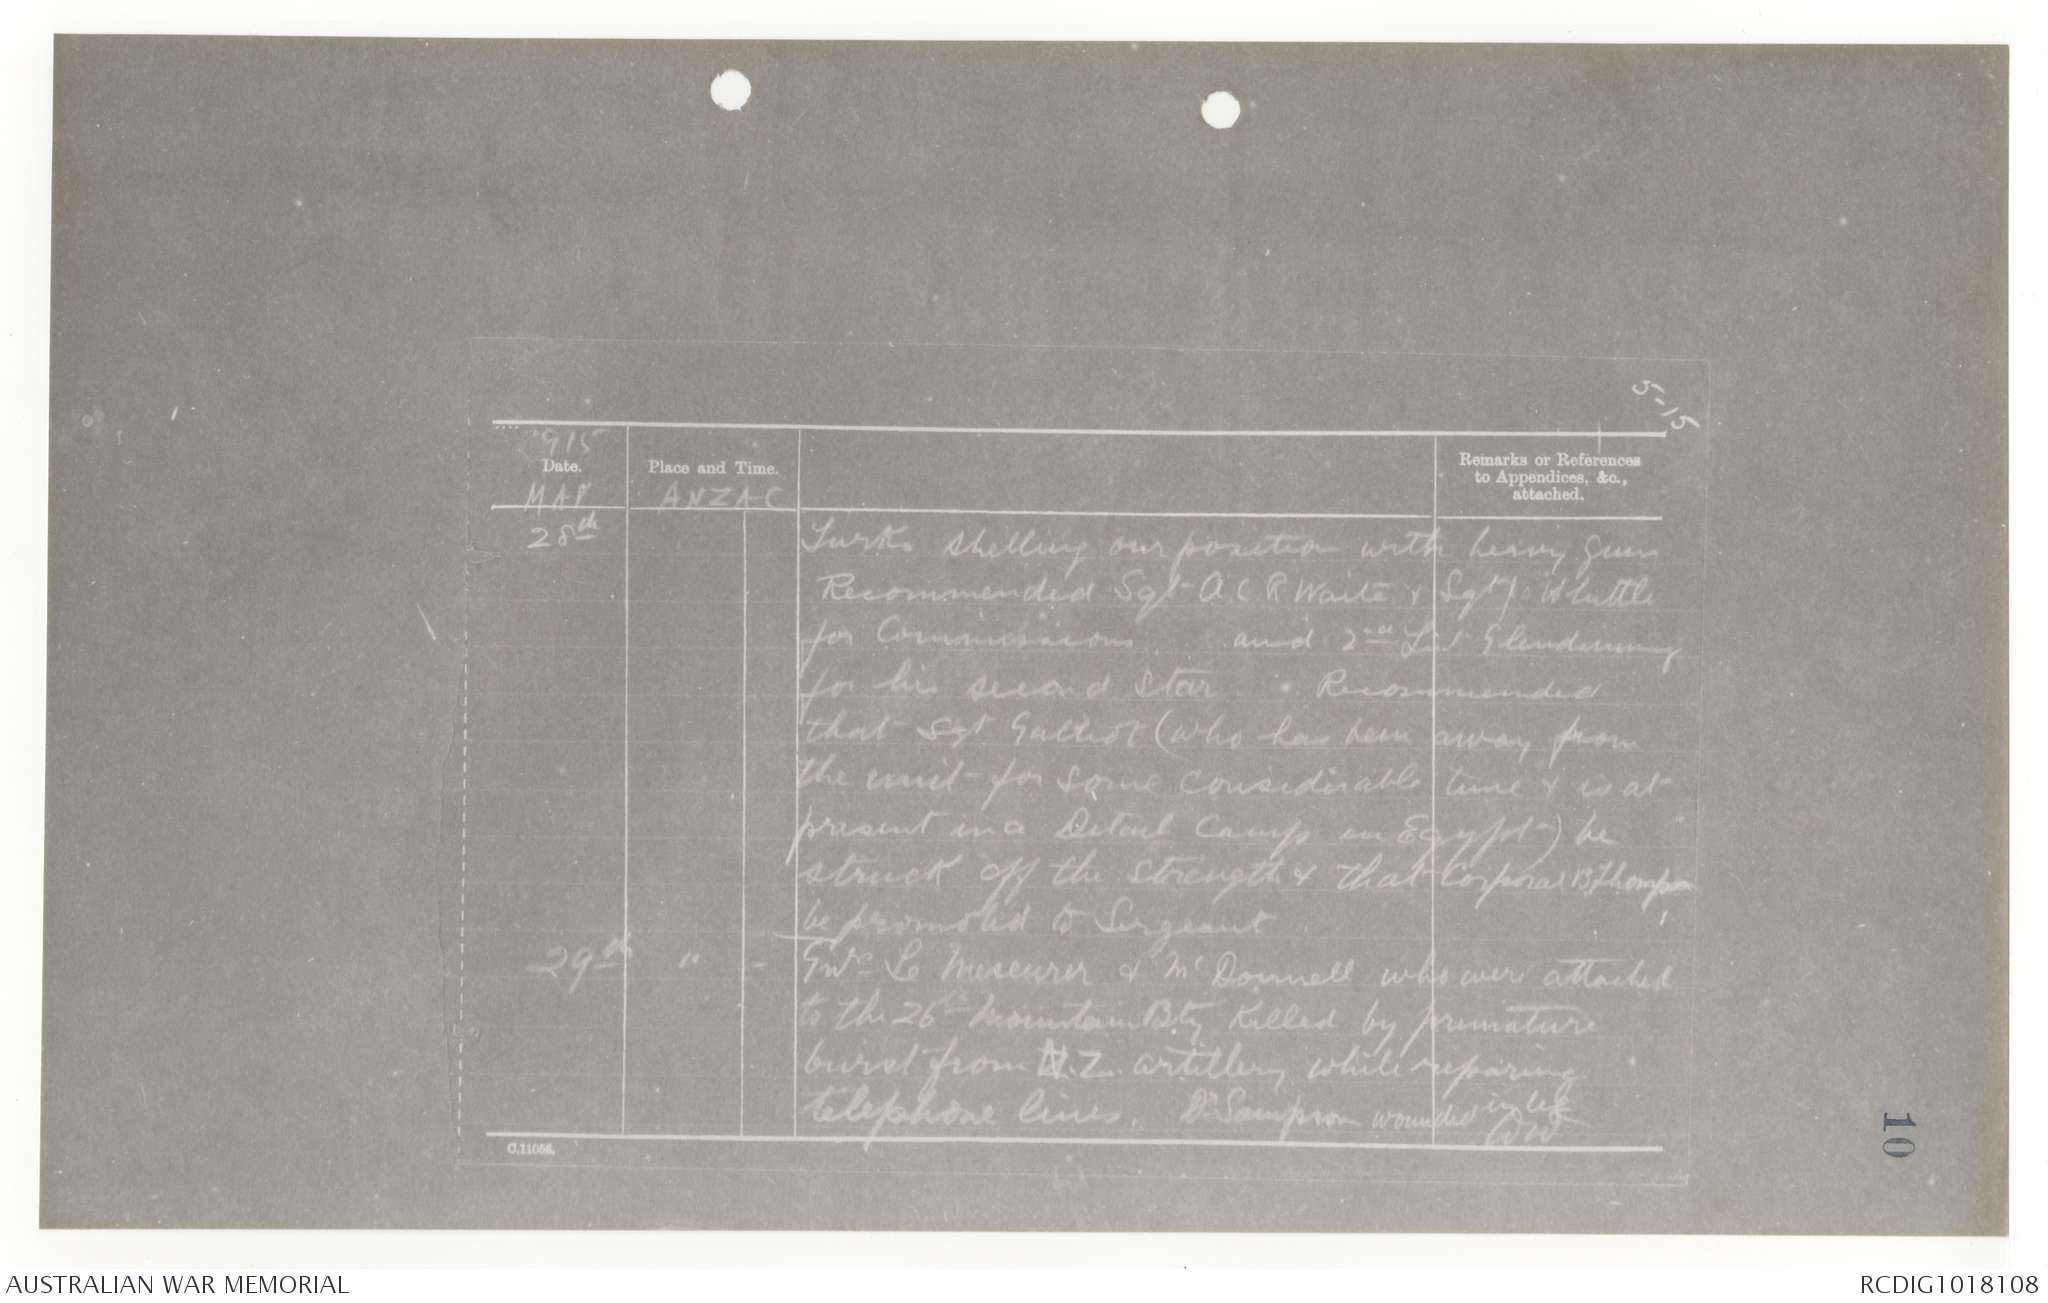 5-15
1915
Date.
Place and Time.
Remarks or References
to Appendices, &c.,
attached.
MAY
ANZAC
28th
Turks shelling our position with heavy guns
Recommended Sgt A C R Waite & Sgt J. H Luttle
for Commissions. and 2nd Lieut Glendinning
for his second Star. Recommended
that Sgt (who has been away from
the unit for some considerable time & is at
present in a Detail Camp in Egypt) be
struck off the Strength & that Corporal B Thompson
be promoted to Sergeant
29th " - Gnrs Le Meseurer & McDonnell who were attached
to the 26th Mountain Bty Killed by premature
burst from N.Z. artillery while repairing
telephone lines. Dr Sampson wounded in leg
C.11056.
10
AUSTRALIAN WAR MEMORIAL
RCDIG1018108